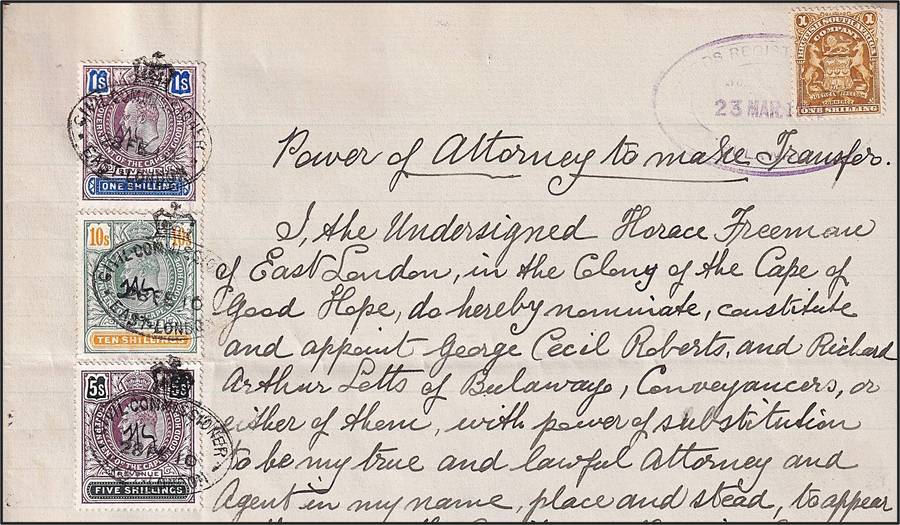 1 1
BRITISH SOUTH AFRICA
COMPANY
JUSTICE FREEDOM
COMMERCE
ONE SHILLING
DS REGIST
23 MAR 1
1s 1s
CIVIL COMMISSIONER
EAST LONDON
ONE SHILLING
10s 10s
CIVIL COMMISS
28 FE 10
EAST LONDO
TEN SHILLINGS
5s 5s
CIVIL COMMISSIONER
28 FE 10
REVENUE
FIVE SHILLINGS
Power of Attorney to make Transfer.
I, the Undersigned Horace Freeman
of East London, in the Colony of the Cape of
Good Hope, do hereby nominate, constitute
and appoint George Cecil Roberts, and Richard
Arthur Letts of Bulawayo, Conveyancers, or
either of them, with power of substitution
to be my true and lawful Attorney and
Agent in my name, place and stead, to appear